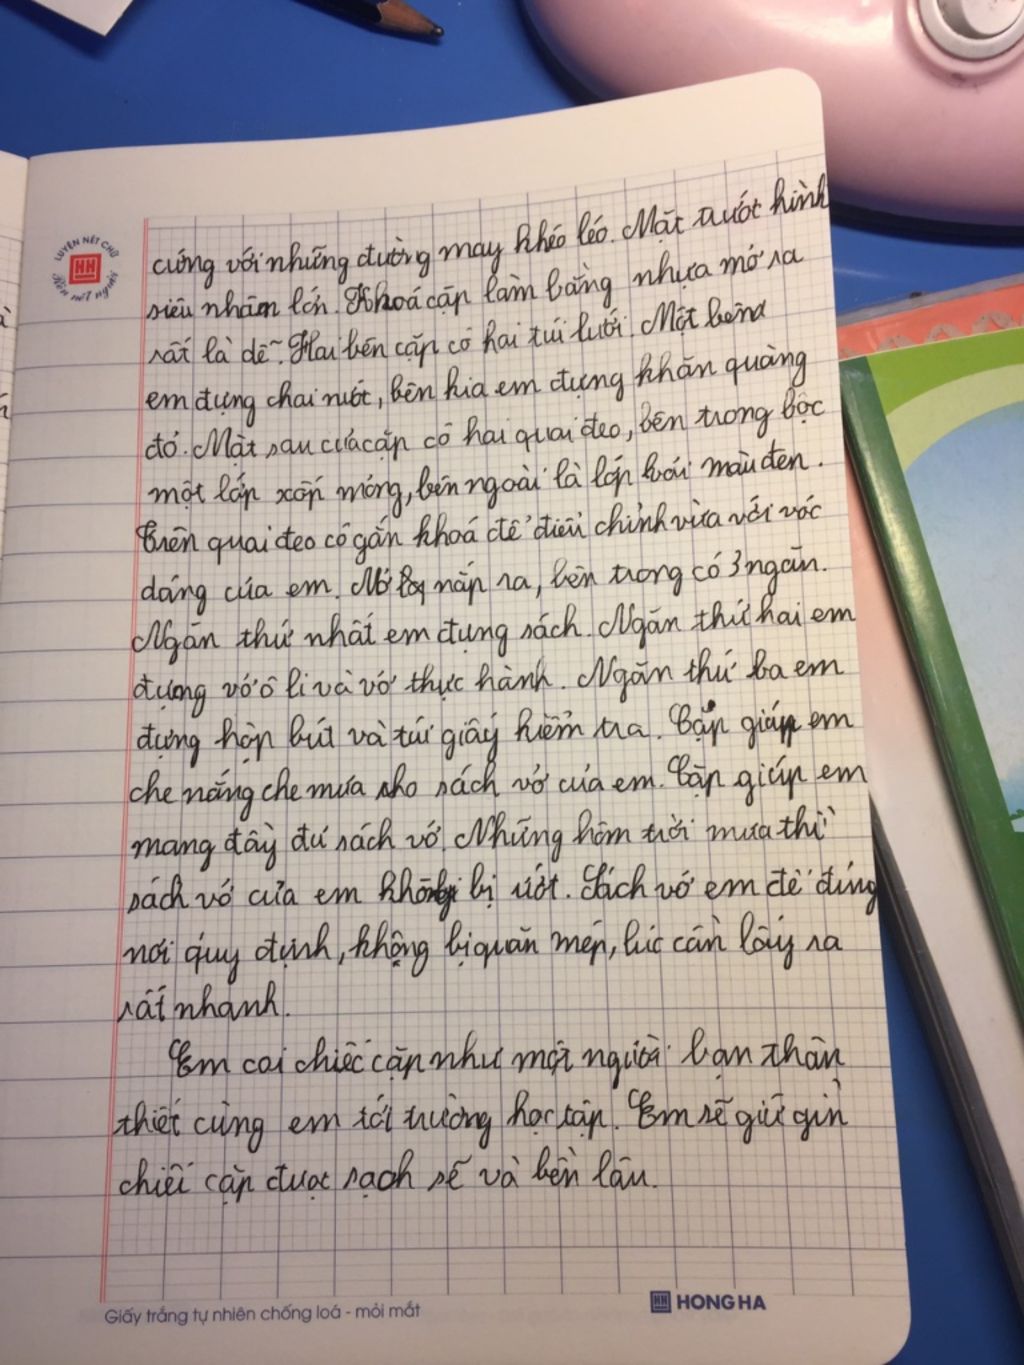 LUYỆN NÉT CHỮ
Rèn nết người
cứng với những đường may khéo léo. Mặt trước hình
siêu nhân lớn. Khoá cặp làm bằng nhựa mở ra
rất là dễ. Hai bên cặp có hai túi lưới. Một bên
em đựng chai nước, bên kia em đựng khăn quàng
đỏ. Mặt sau của cặp có hai quai đeo, bên trong bọc
một lớp xốp mỏng, bên ngoài là lớp vải màu đen.
Trên quai đeo có gắn khoá để điều chỉnh vừa với vóc
dáng của em. Mở nắp ra, bên trong có 3 ngăn.
Ngăn thứ nhất em đựng sách. Ngăn thứ hai em
đựng vở ô li và vở thực hành. Ngăn thứ ba em
đựng hộp bút và túi giấy kiểm tra. Cặp giúp em
che nắng che mưa cho sách vở của em. Cặp giúp em
mang đầy đủ sách vở. Những hôm trời mưa thì
sách vở của em không bị ướt. Sách vở em để đúng
nơi quy định, không bị quăn mép, lúc cần lấy ra
rất nhanh.
Em coi chiếc cặp như một người bạn thân
thiết cùng em tới trường học tập. Em sẽ giữ gìn
chiếc cặp được sạch sẽ và bền lâu.
Giấy trắng tự nhiên chống loá - mỏi mắt
HONG HA